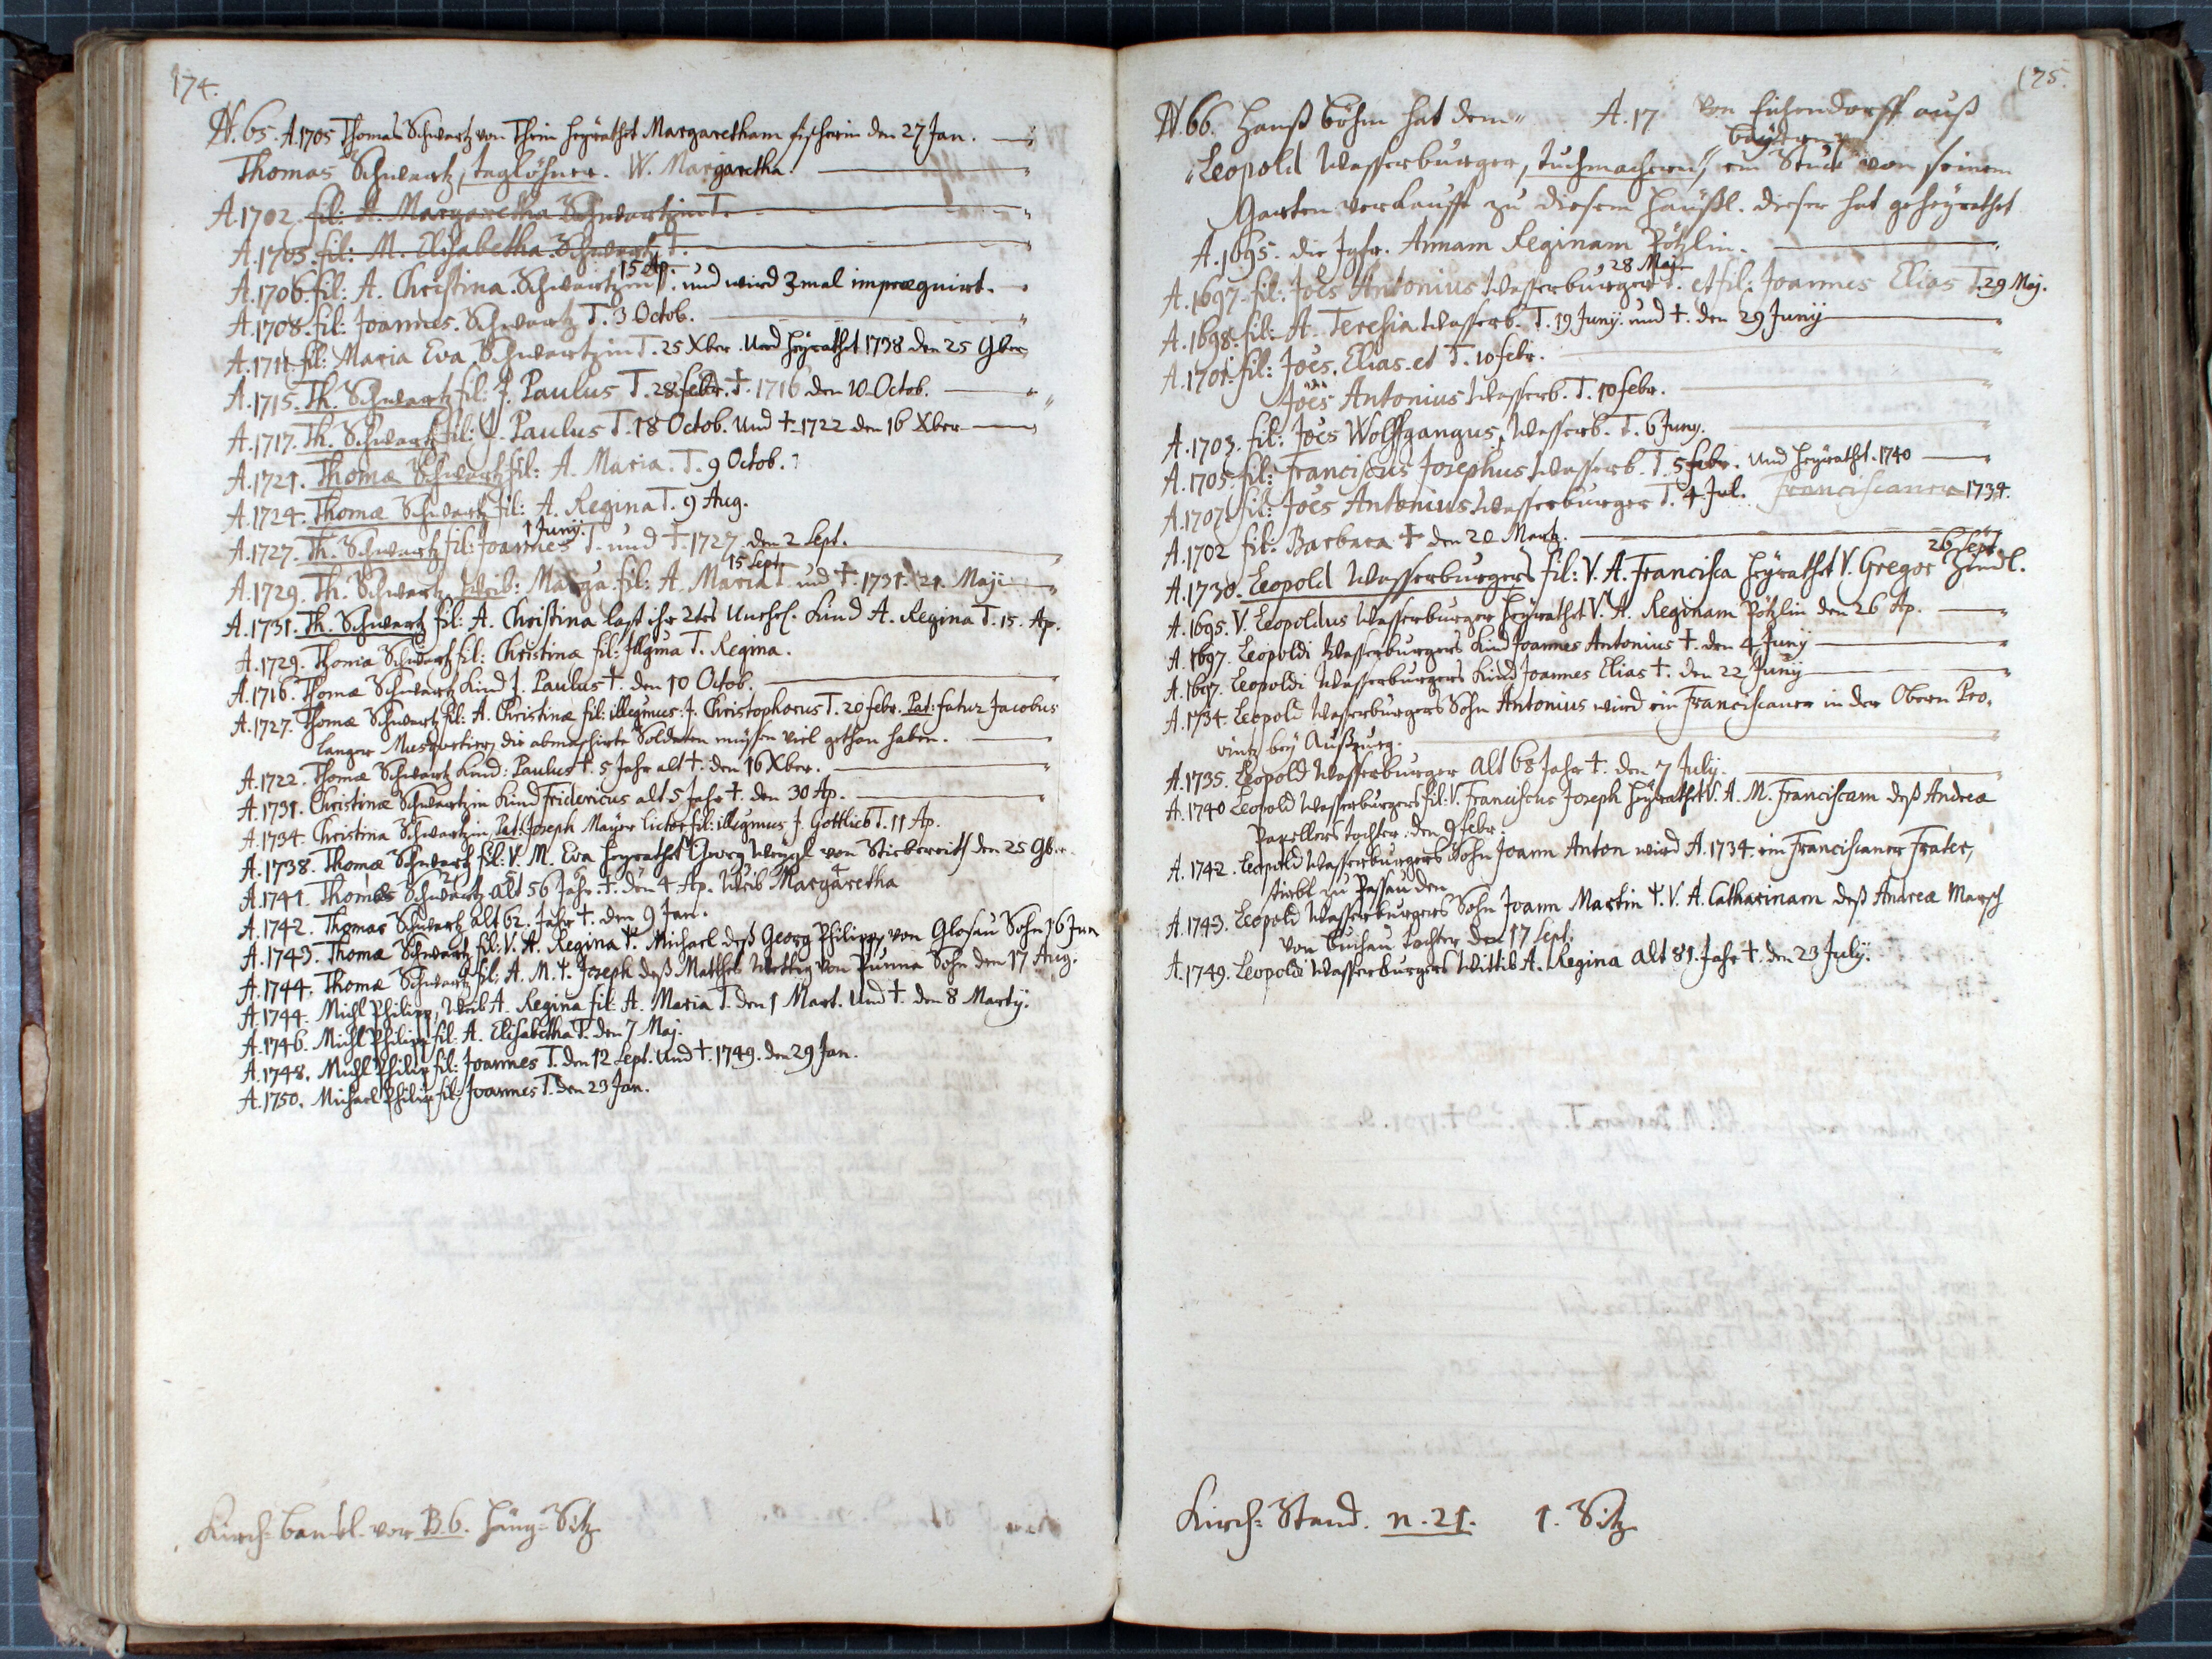 174.
N. 65. A. 1705 Thomas Schwartz von Thein heÿrathet Margaretham fischerin den 27 Jan.
Thomas Schwartz, taglöhner. W. Margaretha.
A. 1702. fil: A. Margaretha Schwartzin T.
A. 1705. fil: M. Elisabetha Schwartz T.
15 Ap.
A. 1706. fil: A. Christina Schwartzin T. und wird 3mal imprægnirt.
A. 1708. fil: Joannes Schwartz T. 3 Octob.
A. 1711. fil: Maria Eva Schwartzin T. 25 Xber. Und heÿrathet 1738 den 25 9ber
A. 1715. Th. Schwartz fil: J. Paulus T. 28. febr. †. 1716 den 10. Octob.
A. 1717. Th. Schwartz fil: J. Paulus T. 18 Octob. Und †. 1722 den 16 Xber
A. 1721. Thomæ Schwartz fil: A. Maria. T. 9 Octob.
A. 1724. Thomæ Schwartz fil: A. Regina T. 9 Aug.
1 Junÿ.
A. 1727. Th. Schwartz fil: Joannes T. und †. 1727. den 2 Sept.
15 Sept.
A. 1729. Th. Schwartz, Weib: Marga. fil: A. Maria T. und †. 1731. 21. Maji
A. 1731. Th. Schwartz fil: A. Christina last ihr 2tes Unehel. Kind A. Regina T. 15. Ap.
A. 1729. Thoma Schwartz fil: Christinæ fil: Illgma T. Regina.
A. 1716. Thomæ Schwartz Kind J. Paulus †. den 10 Octob.
A. 1727. Thomæ Schwartz fil: A. Christinæ fil: illegmus: J. Christophorus T. 20 febr. Pat: fatur Jacobus
Langer Musquetier, die abmaschirte Soldaten müssen viel gethan haben.
A. 1722. Thomæ Schwartz Kind: Paulus †. 5 Jahr alt †. den 16 Xber.
A. 1731. Christinæ Schwartzin Kind Fridericus alt 5 Jahr †. den 30 Ap.
A. 1734. Christina Schwartzin, Pat: Joseph Mayer lictor fil: illegmus J. Gottlieb T. 11 Ap.
A. 1738. Thomæ Schwartz fil: V. M. Eva heyrathet Georg Weygl von Stiebereith den 25 9b.
A. 1741. Thomas Schwartz alt 56 Jahr. †. den 4. Ap. Weib Margaretha
A. 1742. Thomas Schwartz alt 62. Jahr †. den 9 Jan.
A. 1743. Thomæ Schwartz fil: V. A. Regina Ψ. Michael deß Georg Philipp von Glosau Sohn 16 Jun
A. 1744. Thomæ Schwartz fil: A. M. Ψ. Joseph deß Matthes Wettig von Punna Sohn den 17 Aug.
A. 1744. Michl Philipp, Weib A. Regina fil: A. Maria T. den 1 Mart. Und †. den 8 Martÿ.
A. 1746. Michl Philipp fil: A. Elisabetha T. den 7 Maj.
A. 1748. Michl Philip fil: Joannes T. den 12 Sept. Und †. 1749. den 29 Jan.
A. 1750. Michael Philip fil: Joannes T. den 23 Jan.
Kirch=banckl. vor B. 6. häng=Sitz
175.
N. 66. Hanß Böhm hat dem A. 17 von Eichendorff auß
Baÿdern
Leopold Wasserburger, tuchmachern, ein Stuck von seinem
Garten verkaufft zu diesem Häußl. dieser hat geheÿrathet
A. 1695. die Jgfr. Annam Reginam Pötzlin.
28 Maj.
A. 1697. fil: Joes Antonius Wasserburger T. et fil: Joannes Elias T. 29 Maj.
A. 1698. fil: A. Teresia Wasserb. T. 19 Junÿ. und †. den 29 Junÿ
A. 1701. fil: Joes. Elias et T. 10 febr.
Joes Antonius Wasserb. T. 10 febr.
A. 1703. fil: Joes Wolffgangus, Wasserb. T. 6 Juny.
A. 1705. fil: Franciscus Josephus Wasserb. T. 5 febr. Und heÿrathet. 1740
A. 1707. fil: Joes Antonius Wasserburger T. 4. Jul. Franciscaner 1734.
A. 1702 fil: Barbara † den 20 Martz.
26 Sept
A. 1730. Leopold Wasserburgers fil: V. A. Francisca heÿrathet V. Gregor Händl.
A. 1695. V. Leopoldus Wasserburger heÿrathet V. A. Reginam Pötzlin den 26 Ap.
A. 1697. Leopoldi Wasserburgers Kind Joannes Antonius †. den 4 Juny
A. 1697. Leopoldi Wasserburgers Kind Joannes Elias †. den 22 Junÿ
A. 1734. Leopold Wasserburgers Sohn Antonius wird ein Franciscaner in der Obern Pro.
vintz beÿ Außpurg.
A. 1735. Leopold Wasserburger alt 68 Jahr †. den 7 July.
A. 1740 Leopold Wasserburgers fil: V. Franciscus Joseph heÿrathet V. A. M. Franciscam deß Andreæ
Panellers tochter. den 9 febr.
A. 1742. Leopold Wasserburgers Sohn Joann Anton wird A. 1734. ein Franciscaner Frater,
stirbt zu Passau den
A. 1743. Leopold Wasserburgers Sohn Joann Martin Ψ. V. A. Catharinam deß Andreæ Marsch
von Buchau tochter den 17 Sept
A. 1749. Leopoldi Wasserburgers Wittib A. Regina alt 81. Jahr †. den 23 Julÿ.
Kirch=Stand. n. 21. 1. Sitz